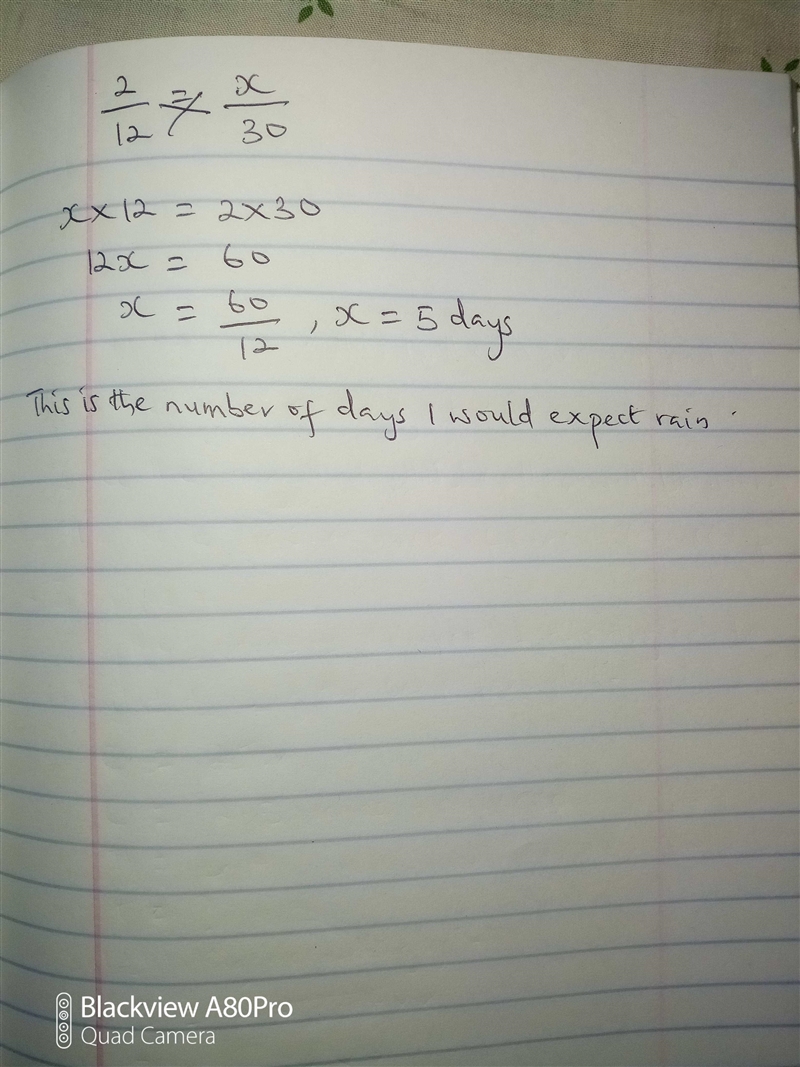 2/12 = x/30
x × 12 = 2 × 30
12x = 60
x = 60/12 , x = 5 days
This is the number of days I would expect rain.
Blackview A80Pro
Quad Camera